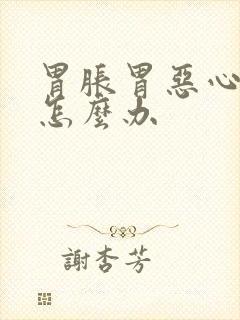 胃脹胃惡心
怎麼办
謝杏芳